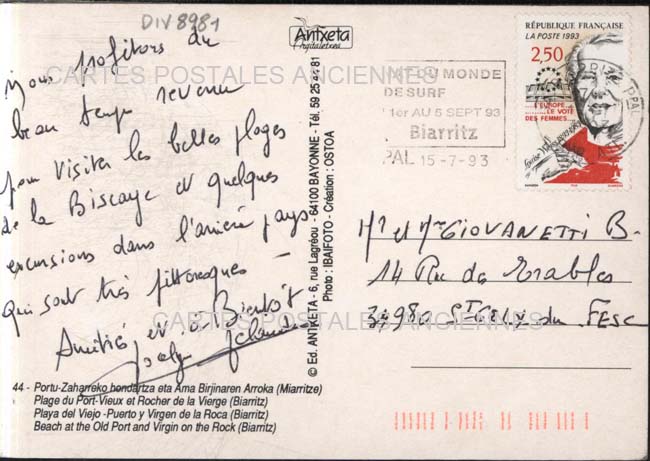 DIV 8981
Nous profitons du
beau temps revenu
pour visiter les belles plages
de la Biscaye et quelques
excursions dans l'arrière pays
qui sont très pittoresques —
Amitiés et à Bientôt
CARTES POSTALES ANCIENNES
CARTES POSTALES ANCIENNES
44 - Portu-Zaharreko hondartza eta Ama Birjinaren Arroka (Miarritze)
Plage du Port-Vieux et Rocher de la Vierge (Biarritz)
Playa del Viejo -Puerto y Virgen de la Roca (Biarritz)
Beach at the Old Port and Virgin on the Rock (Biarritz)
Antxeta
Argitaletxea
© Ed. ANTXETA - 6, rue Lagréou - 64100 BAYONNE - Tél. 59 25 44 81
Photo : IBAIFOTO - Création : OSTOA
DU MONDE
DE SURF
1er AU 5 SEPT 93
Biarritz
PAL 15-7-93
RÉPUBLIQUE FRANÇAISE
LA POSTE 1993
2,50
L'EUROPE
LE VOTE
DES FEMMES
BIARRITZ PPAL
Mr et Mme GIOVANETTI B-
14 Rue des Erables
34980 St GELY du FESC